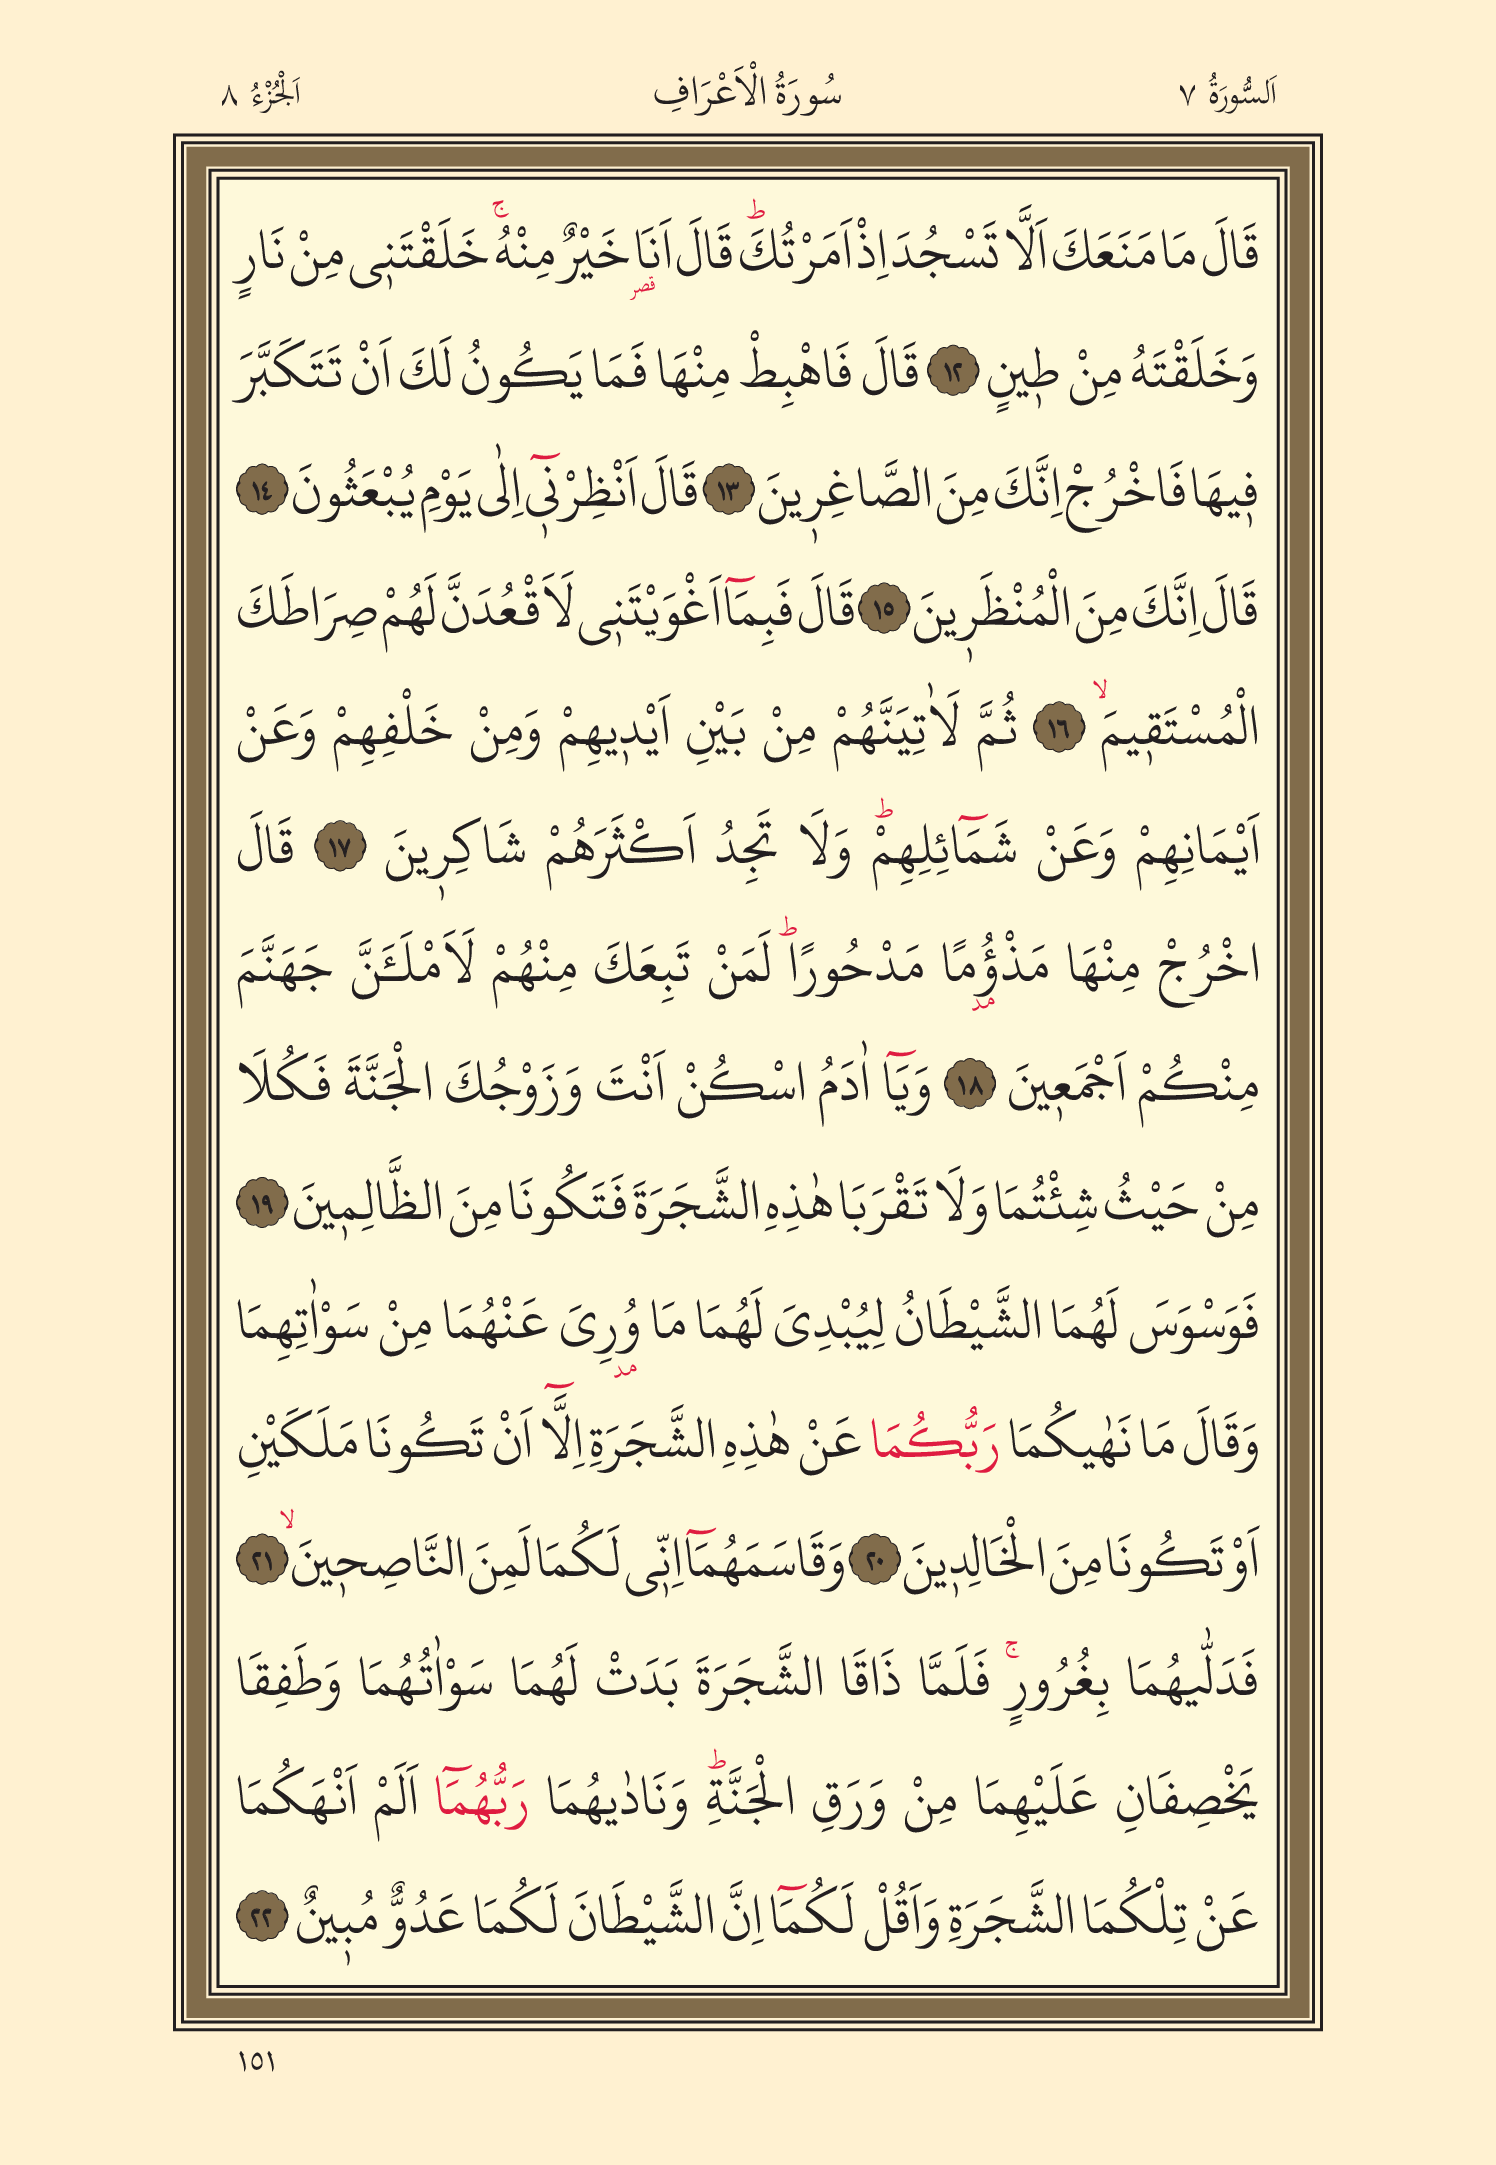 اَلسُّورَةُ ٧ سُورَةُ الْاَعْرَافِ اَلْجُزْءُ ٨
قَالَ مَا مَنَعَكَ اَلَّا تَسْجُدَ اِذْ اَمَرْتُكَۜ قَالَ اَنَا خَيْرٌ مِنْهُۚ خَلَقْتَن۪ى مِنْ نَارٍ
قصر
وَخَلَقْتَهُ مِنْ ط۪ينٍ ١٢ قَالَ فَاهْبِطْ مِنْهَا فَمَا يَكُونُ لَكَ اَنْ تَتَكَبَّرَ
ف۪يهَا فَاخْرُجْ اِنَّكَ مِنَ الصَّاغِر۪ينَ ١٣ قَالَ اَنْظِرْن۪ٓى اِلٰى يَوْمِ يُبْعَثُونَ ١٤
قَالَ اِنَّكَ مِنَ الْمُنْظَر۪ينَ ١٥ قَالَ فَبِمَٓا اَغْوَيْتَن۪ى لَاَقْعُدَنَّ لَهُمْ صِرَاطَكَ
الْمُسْتَق۪يمَۙ ١٦ ثُمَّ لَاٰتِيَنَّهُمْ مِنْ بَيْنِ اَيْد۪يهِمْ وَمِنْ خَلْفِهِمْ وَعَنْ
اَيْمَانِهِمْ وَعَنْ شَمَٓائِلِهِمْۜ وَلَا تَجِدُ اَكْثَرَهُمْ شَاكِر۪ينَ ١٧ قَالَ
اخْرُجْ مِنْهَا مَذْؤُمًا مَدْحُورًاۜ لَمَنْ تَبِعَكَ مِنْهُمْ لَاَمْلَـَٔنَّ جَهَنَّمَ
مد
مِنْكُمْ اَجْمَع۪ينَ ١٨ وَيَٓا اٰدَمُ اسْكُنْ اَنْتَ وَزَوْجُكَ الْجَنَّةَ فَكُلَا
مِنْ حَيْثُ شِئْتُمَا وَلَا تَقْرَبَا هٰذِهِ الشَّجَرَةَ فَتَكُونَا مِنَ الظَّالِم۪ينَ ١٩
فَوَسْوَسَ لَهُمَا الشَّيْطَانُ لِيُبْدِىَ لَهُمَا مَا وُرِىَ عَنْهُمَا مِنْ سَوْاٰتِهِمَا
مد
وَقَالَ مَا نَهٰيكُمَا رَبُّكُمَا عَنْ هٰذِهِ الشَّجَرَةِ اِلَّٓا اَنْ تَكُونَا مَلَكَيْنِ
اَوْ تَكُونَا مِنَ الْخَالِد۪ينَ ٢٠ وَقَاسَمَهُمَٓا اِنّ۪ى لَكُمَا لَمِنَ النَّاصِح۪ينَۙ ٢١
فَدَلّٰيهُمَا بِغُرُورٍۚ فَلَمَّا ذَاقَا الشَّجَرَةَ بَدَتْ لَهُمَا سَوْاٰتُهُمَا وَطَفِقَا
يَخْصِفَانِ عَلَيْهِمَا مِنْ وَرَقِ الْجَنَّةِۜ وَنَادٰيهُمَا رَبُّهُمَٓا اَلَمْ اَنْهَكُمَا
عَنْ تِلْكُمَا الشَّجَرَةِ وَاَقُلْ لَكُمَٓا اِنَّ الشَّيْطَانَ لَكُمَا عَدُوٌّ مُب۪ينٌ ٢٢
١٥١